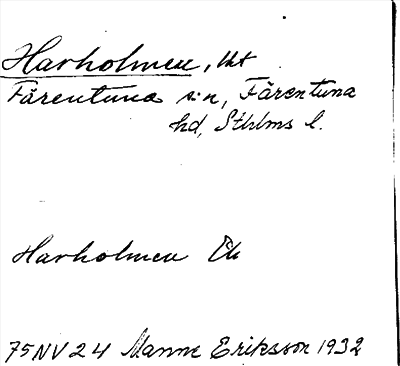 Harholmen, tkt
Färentuna s:n, Färentuna
hd, Sthlms l.
Harholmen Ek
75NV24 Manne Eriksson 1932